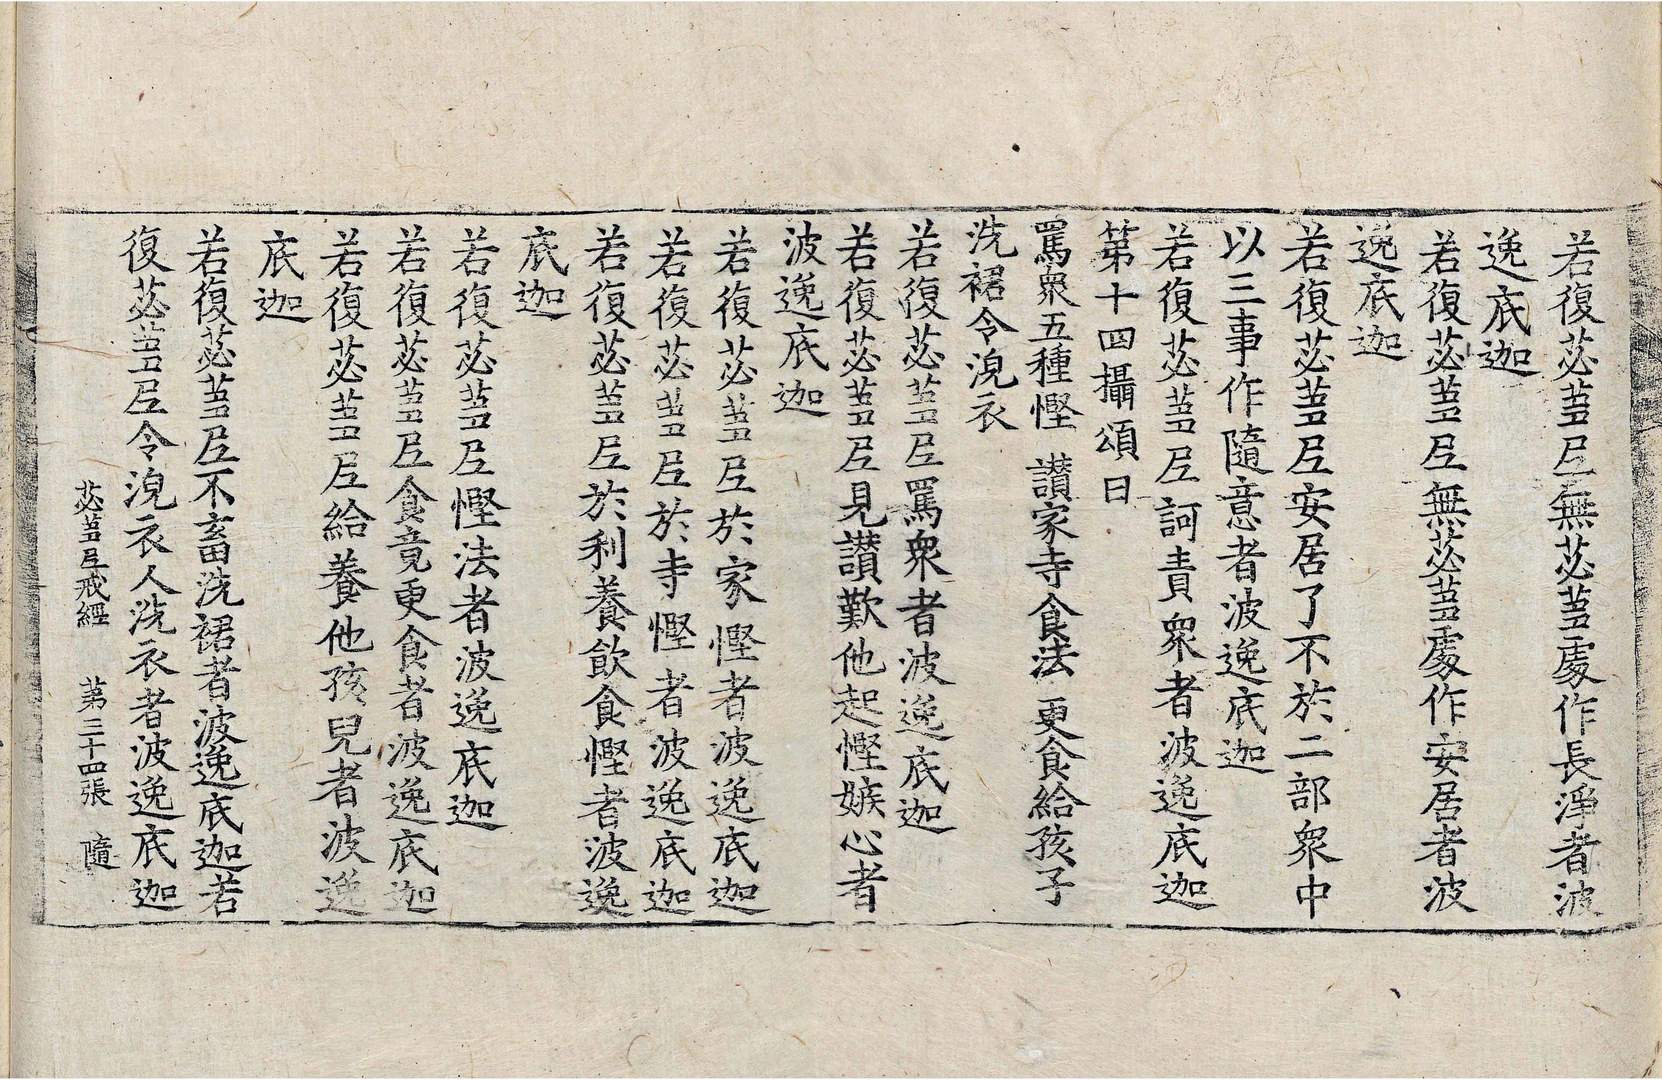 若復苾蒭尼無苾蒭處作長淨者波
逸底迦
若復苾蒭尼無苾蒭處作安居者波
逸底迦
若復苾蒭尼安居了不於二部衆中
以三事作隨意者波逸底迦
若復苾蒭尼訶責衆者波逸底迦
第十四攝頌曰
罵衆五種慳 讃家寺食法 更食給孩子
洗裙令浣衣
若復苾蒭尼罵衆者波逸底迦
若復苾蒭尼見讃歎他起慳嫉心者
波逸底迦
若復苾蒭尼於家慳者波逸底迦
若復苾蒭尼於寺慳者波逸底迦
若復苾蒭尼於利養飲食慳者波逸
底迦
若復苾蒭尼慳法者波逸底迦
若復苾蒭尼食竟更食者波逸底迦
若復苾蒭尼給養他孩兒者波逸
底迦
若復苾蒭尼不畜洗裙者波逸底迦若
復苾蒭尼令浣衣人洗衣者波逸底迦
苾蒭尼戒經 第三十四張 隨